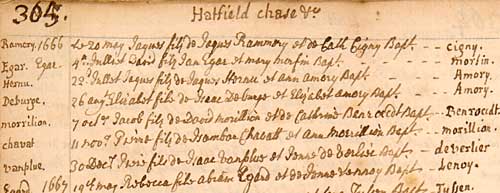 305. Hatfield chase &c.
Ramery. 1666 Le 20 may Jaques fils de Jaques Rammery et de Cath Cigny Bapt. -- cigny.
Egar. Egar 4e Juillet David fils Jan Egar et mary morfin Bapt. -- morfin.
Hernu. 22 Juillet Jaques fils de Jaques Hernu et ann amory Bapt. -- Amory.
Deburge. 26 aug Elizabet fille de Isaac Deburge et Elizabet amory Bapt -- Amory.
morrilion. 7 octr Jacob fils de David morillion et de Catherine Benrocdt Bapt. Benroudt.
chavat 11 novr Pierre fils de Isambar Chavatt et ann Morrillion Bapt -- morillion.
vanplue. 30 Decr fils de Isaac vanplue et Jenne de Verlier Bapt -- deverlier
Egard 1667 19 may Rebecca fille Abram Egard et de Jenne Lennoy Bapt -- Lenoy.
Bapt -- Tulien.